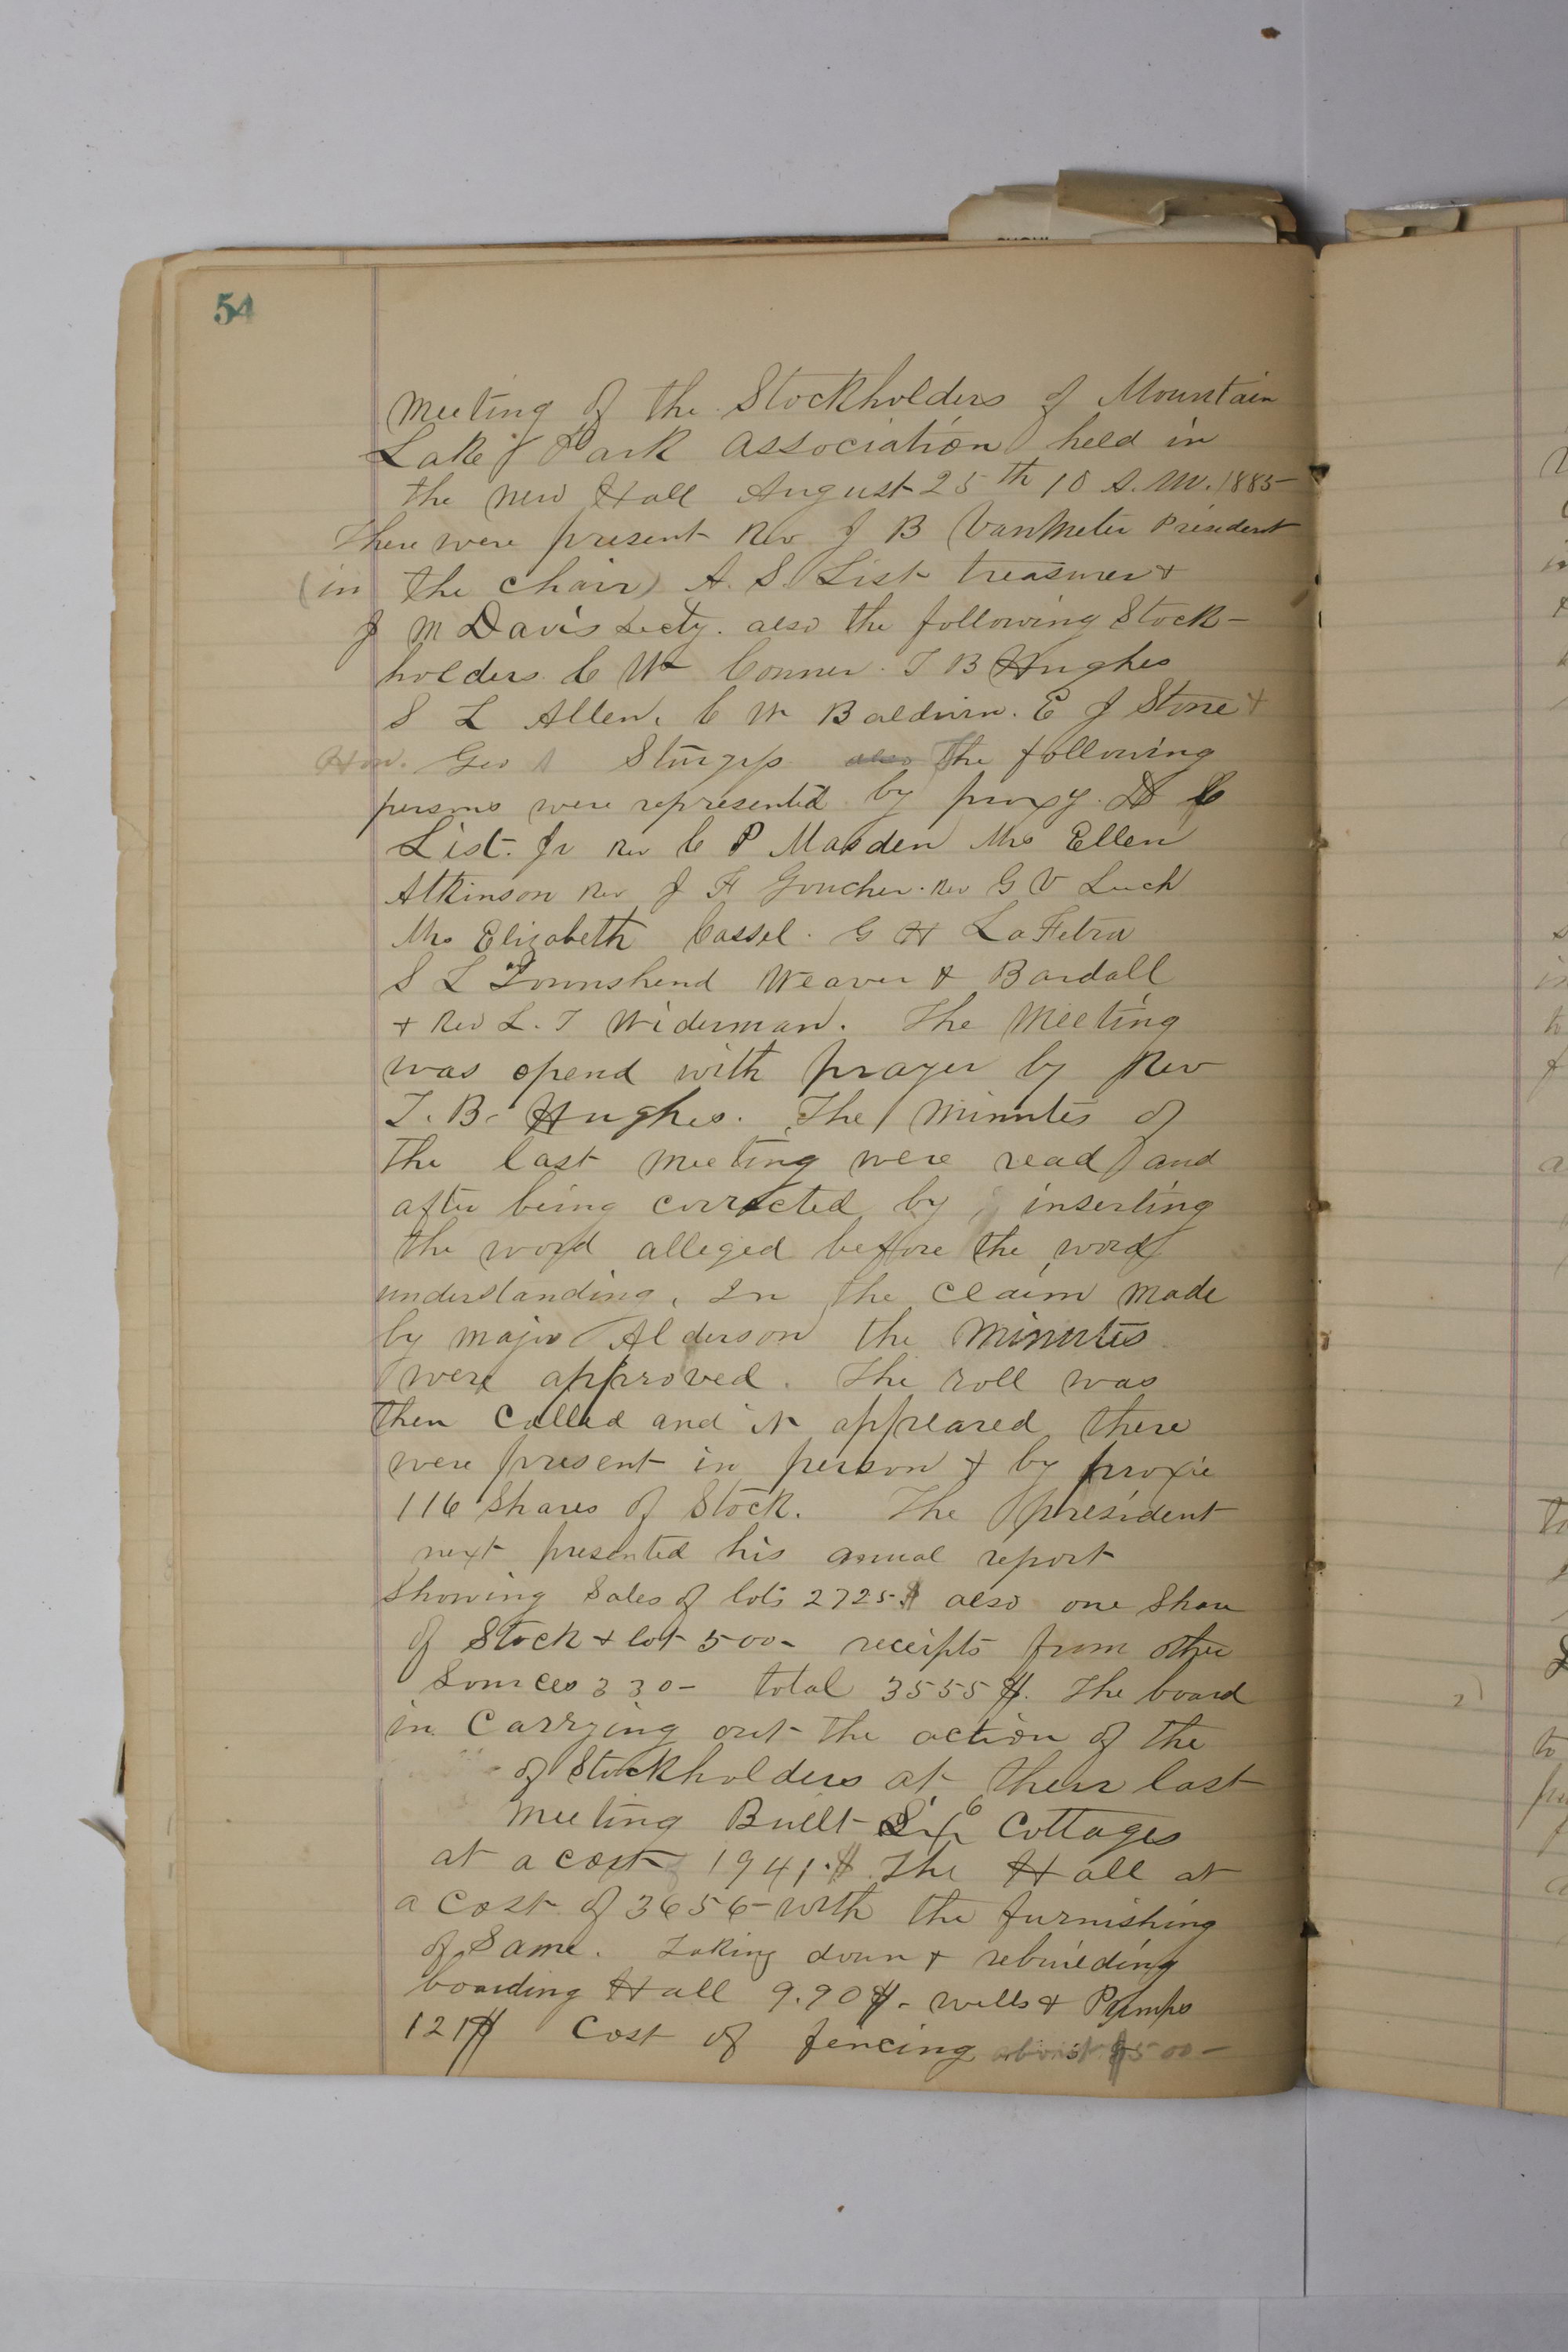 54
Meeting of the Stockholders of Mountain
Lake Park Association held in
the new Hall August 25th 10 A.M. 1885
There were present Rev J B VanMeter President
(in the chair) A. S. List treasurer &
J M Davis Secty. also the following Stock-
holders C W Conner. T B Hughes
S L Allen. C W Baldwin. E J Stone &
Hon. Geo A Sturgis also The following
persons were represented by proxy. D C
List. Jr Rev C P Masden Mrs Ellen
Atkinson Rev J F Goucher. Rev G V Leech
Mrs Elizabeth Cassel. G H LaFetra
S L Townshend Weaver & Bardall
& Rev L. T Widerman. The Meeting
was opend with prayer by Rev
T. B. Hughes. The minutes of
the last meeting were read and
after being corrected by inserting
the word alleged before the word
understanding, In the claim made
by major Alderson the minutes
were approved. The roll was
then called and it appeared there
were present in person & by proxie
116 Shares of Stock. The president
next presented his annual report
Showing Sales of lots 2725$ also one Share
of Stock & lot 500- receipts from other
Sources 330- total 3555$. The board
in Carrying out the action of the
of Stockholders at their last
meeting Built Six 6 Cottages
at a cost 1941.$ The Hall at
a cost of 3656- with the furnishing
of Same. Taking down & rebuilding
boarding Hall 9.90$- wells & Pumps
121$ Cost of fencing about $500-